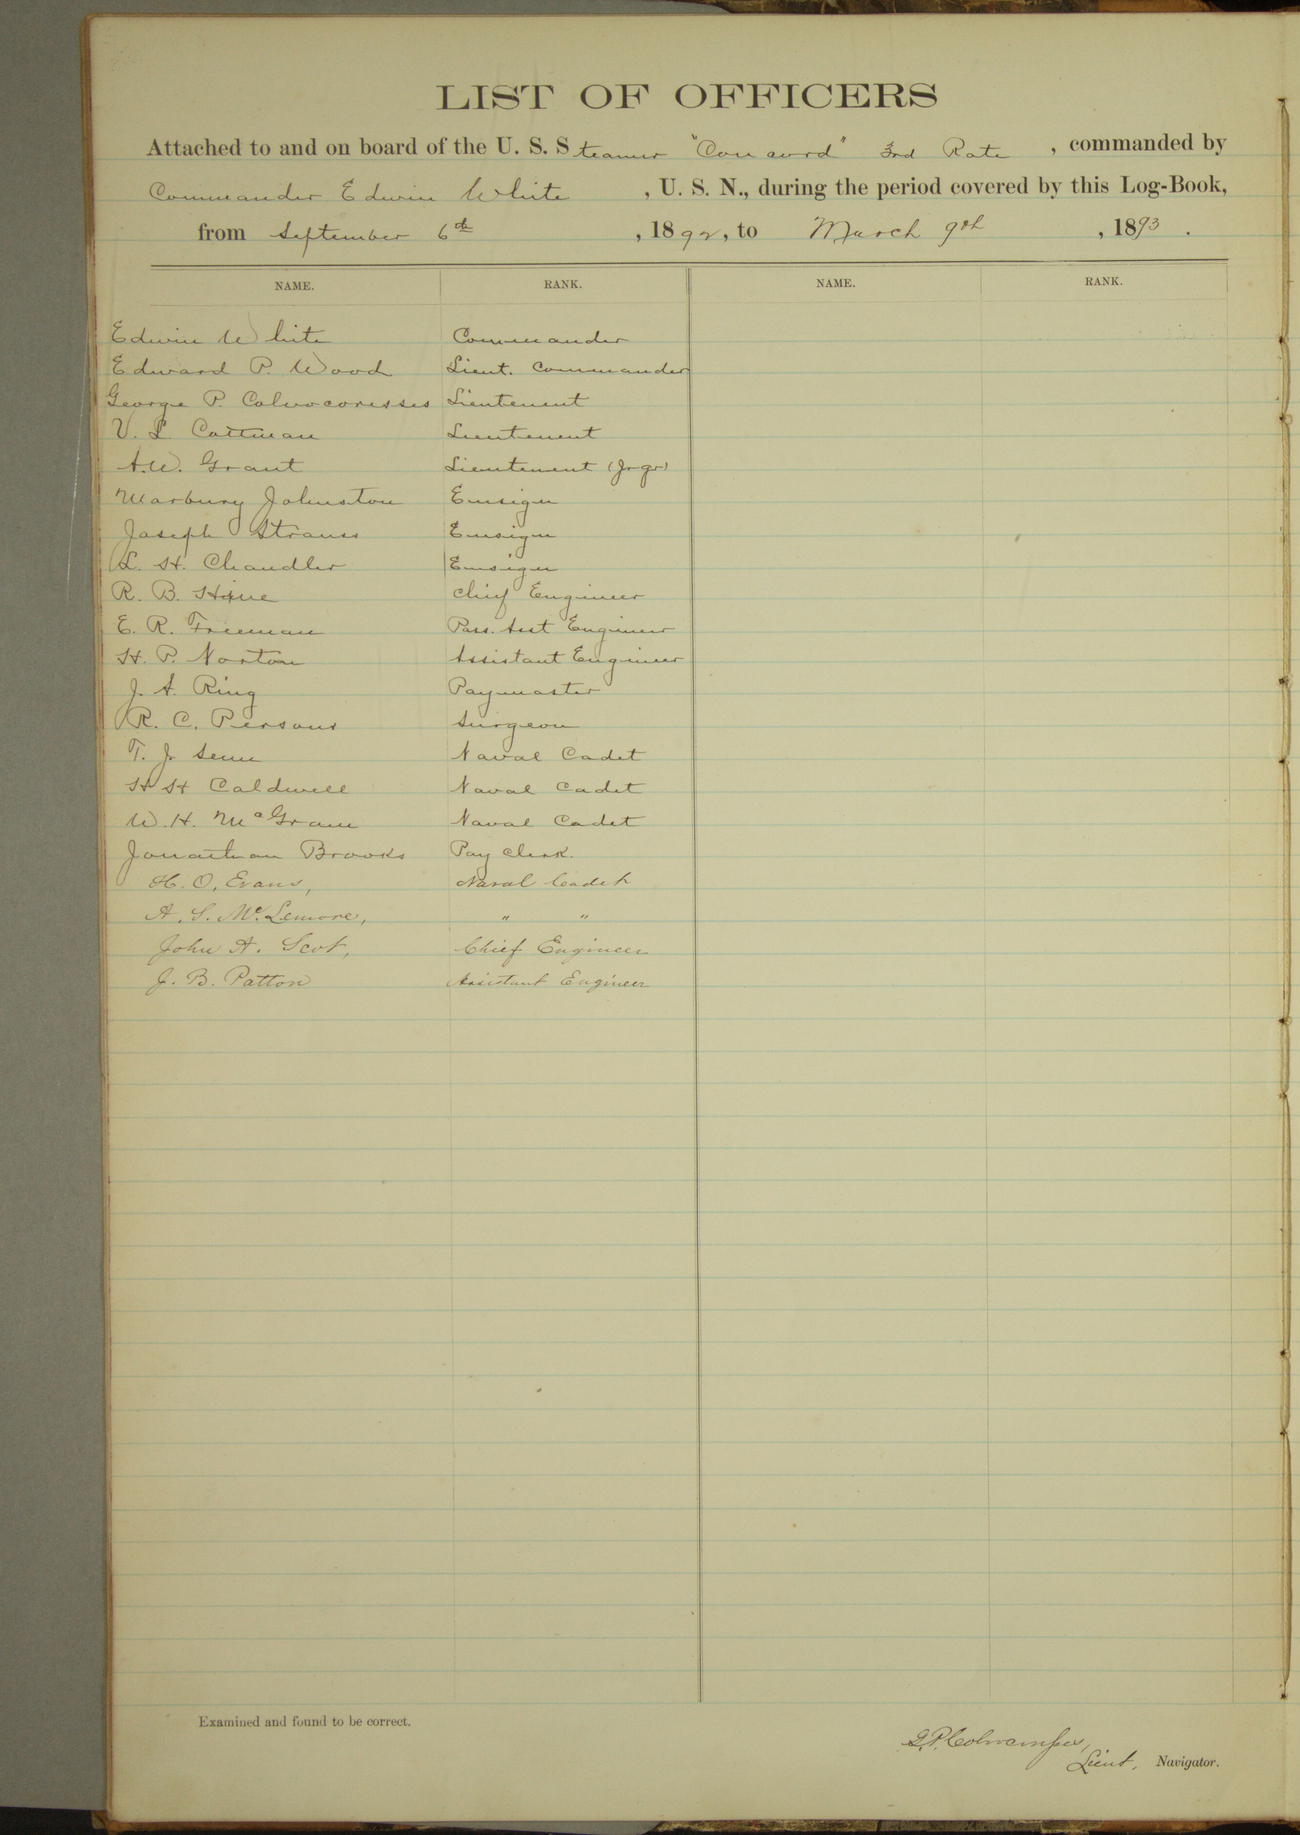 LIST OF OFFICERS
Attached to and on board of the U. S. Steamer "Concord" 3rd Rate, commanded by
Commander Edwin White, U. S. N., during the period covered by this Log-Book,
from September 6th, 1892, to March 9th, 1893.
NAME. RANK. NAME. RANK.
Edwin White Commander
Edward P. Wood Lieut. Commander
George P. Colvocoresses Lieutenent
V. L. Cottman Lieutenent
A.W. Grant Lieutenent (Jr gr)
Marbury Johnston Ensign
Joseph Strauss Ensign
L. H. Chandler Ensign
R. B. Hine Chief Engineer
E. R. Freeman Pass. Asst Engineer
H. P. Norton Assistant Engineer
J. A. Ring Paymaster
R. C. Persons Surgeon
T. J. Senn Naval Cadet
H H Caldwell Naval Cadet
W. H. McGrann Naval Cadet
Jonathan Brooks Pay Clerk.
H. O. Evans, Naval Cadet
A. S. McLemore, " "
John A. Scot, Chief Engineer
J. B. Patton Assistant Engineer
Examined and found to be correct.
G.P. Colvocoresses,
Lieut, Navigator.